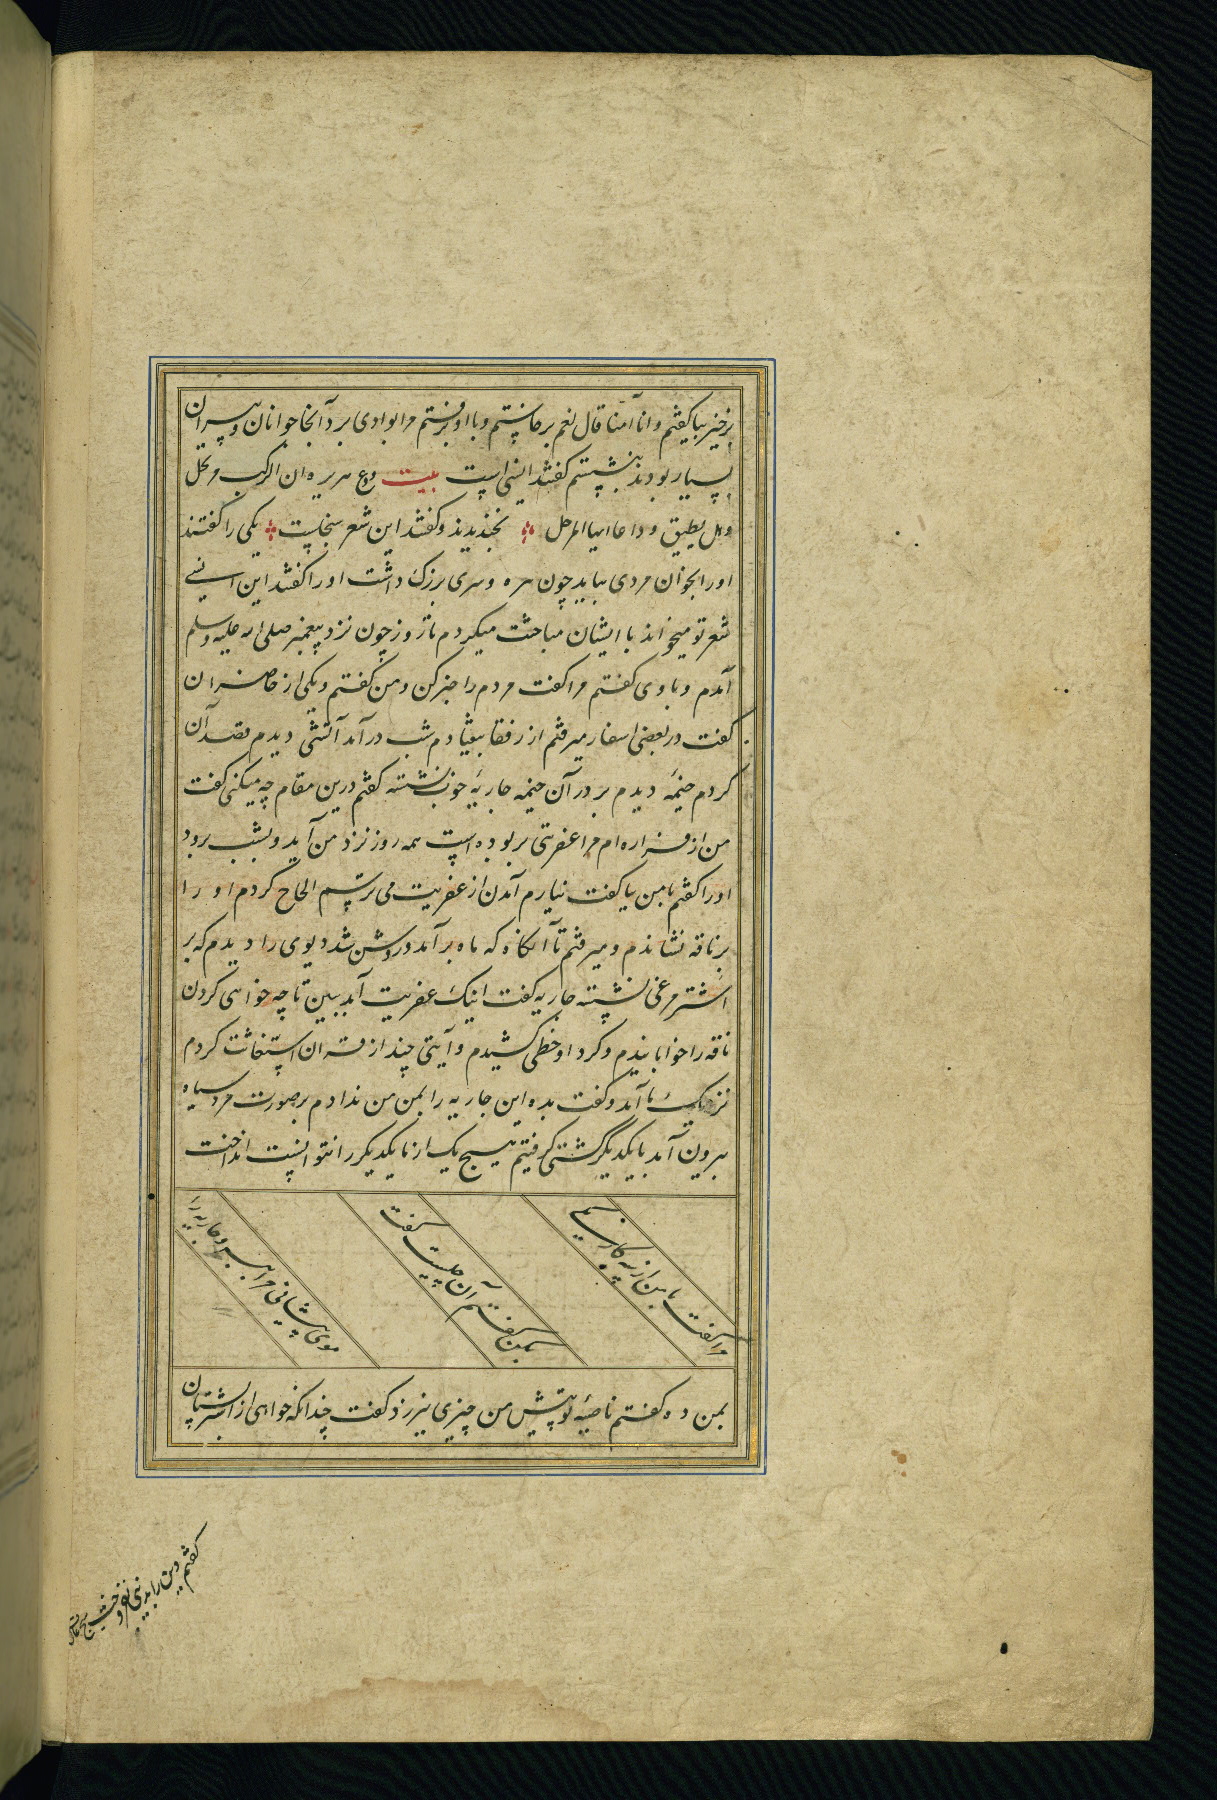 برخیز بیا گفتم وانا آمنا قال نعم برخاستم و با او برفتم مرا بوادی برد آنجا جوانان و پیران
بسیار بودند بنشستم گفتند انسی است بیت ودع هریره ان الرکب مرتحل
وهل یطیق وداعا ایها الرجل بخندیدند و گفتند این شعر یکی را گفتند
او را بخوان مردی بیاید چون هره و سری بزرگ داشت او را گفتند این انسی
شعر تو میخواند با ایشان مباحثت میکردم تا روز چون نزد پیغمبر صلی الله علیه وسلم
آمدم و با وی گفتم مرا گفت مردم را خبر کن و من گفتم و یکی از حاضران
گفت در بعضی اسفار میرفتم از رفقا بیفتادم شب در آمد آتشی دیدم قصد آن
کردم خیمهٔ دیدم بر در آن خیمه جاریهٔ خوب نشسته گفتم درین مقام چه میکنی گفت
من از فزاره‌ام مرا عفریتی بربوده است همه روز نزد من آید و بشب برود
او را گفتم با من بیا گفت نیارم آمدن از عفریت می ترسم الحاح کردم او را
بر ناقه نشاندم و میرفتم تا آنگاه که ماه برآمد و روشن شد دیوی را دیدم که بر
اشتر مرغی نشسته جاریه گفت اینک عفریت آمد ببین تا چه خواهی کردن
ناقه را خوابانیدم و گرد او خطی کشیدم و آیتی چند از قرآن استغاثت کردم
نزدیک ما آمد و گفت بده این جاریه را بمن من ندادم بر صورت مرد سیاه
بیرون آمد با یکدیگر کشتی گرفتیم هیچ یک از ما یکدیگر را نتوانست انداخت
مرا گفت با من از سه کار
بکن گفتم آن چیست گفت
موی پیشانی مرا ببر و جاریه را
بمن ده گفتم ناصیهٔ تو پیش من چیزی نیرزد گفت چندانکه خواهی از اشتر بستان
گفتم دین را بدنیی نفروختم